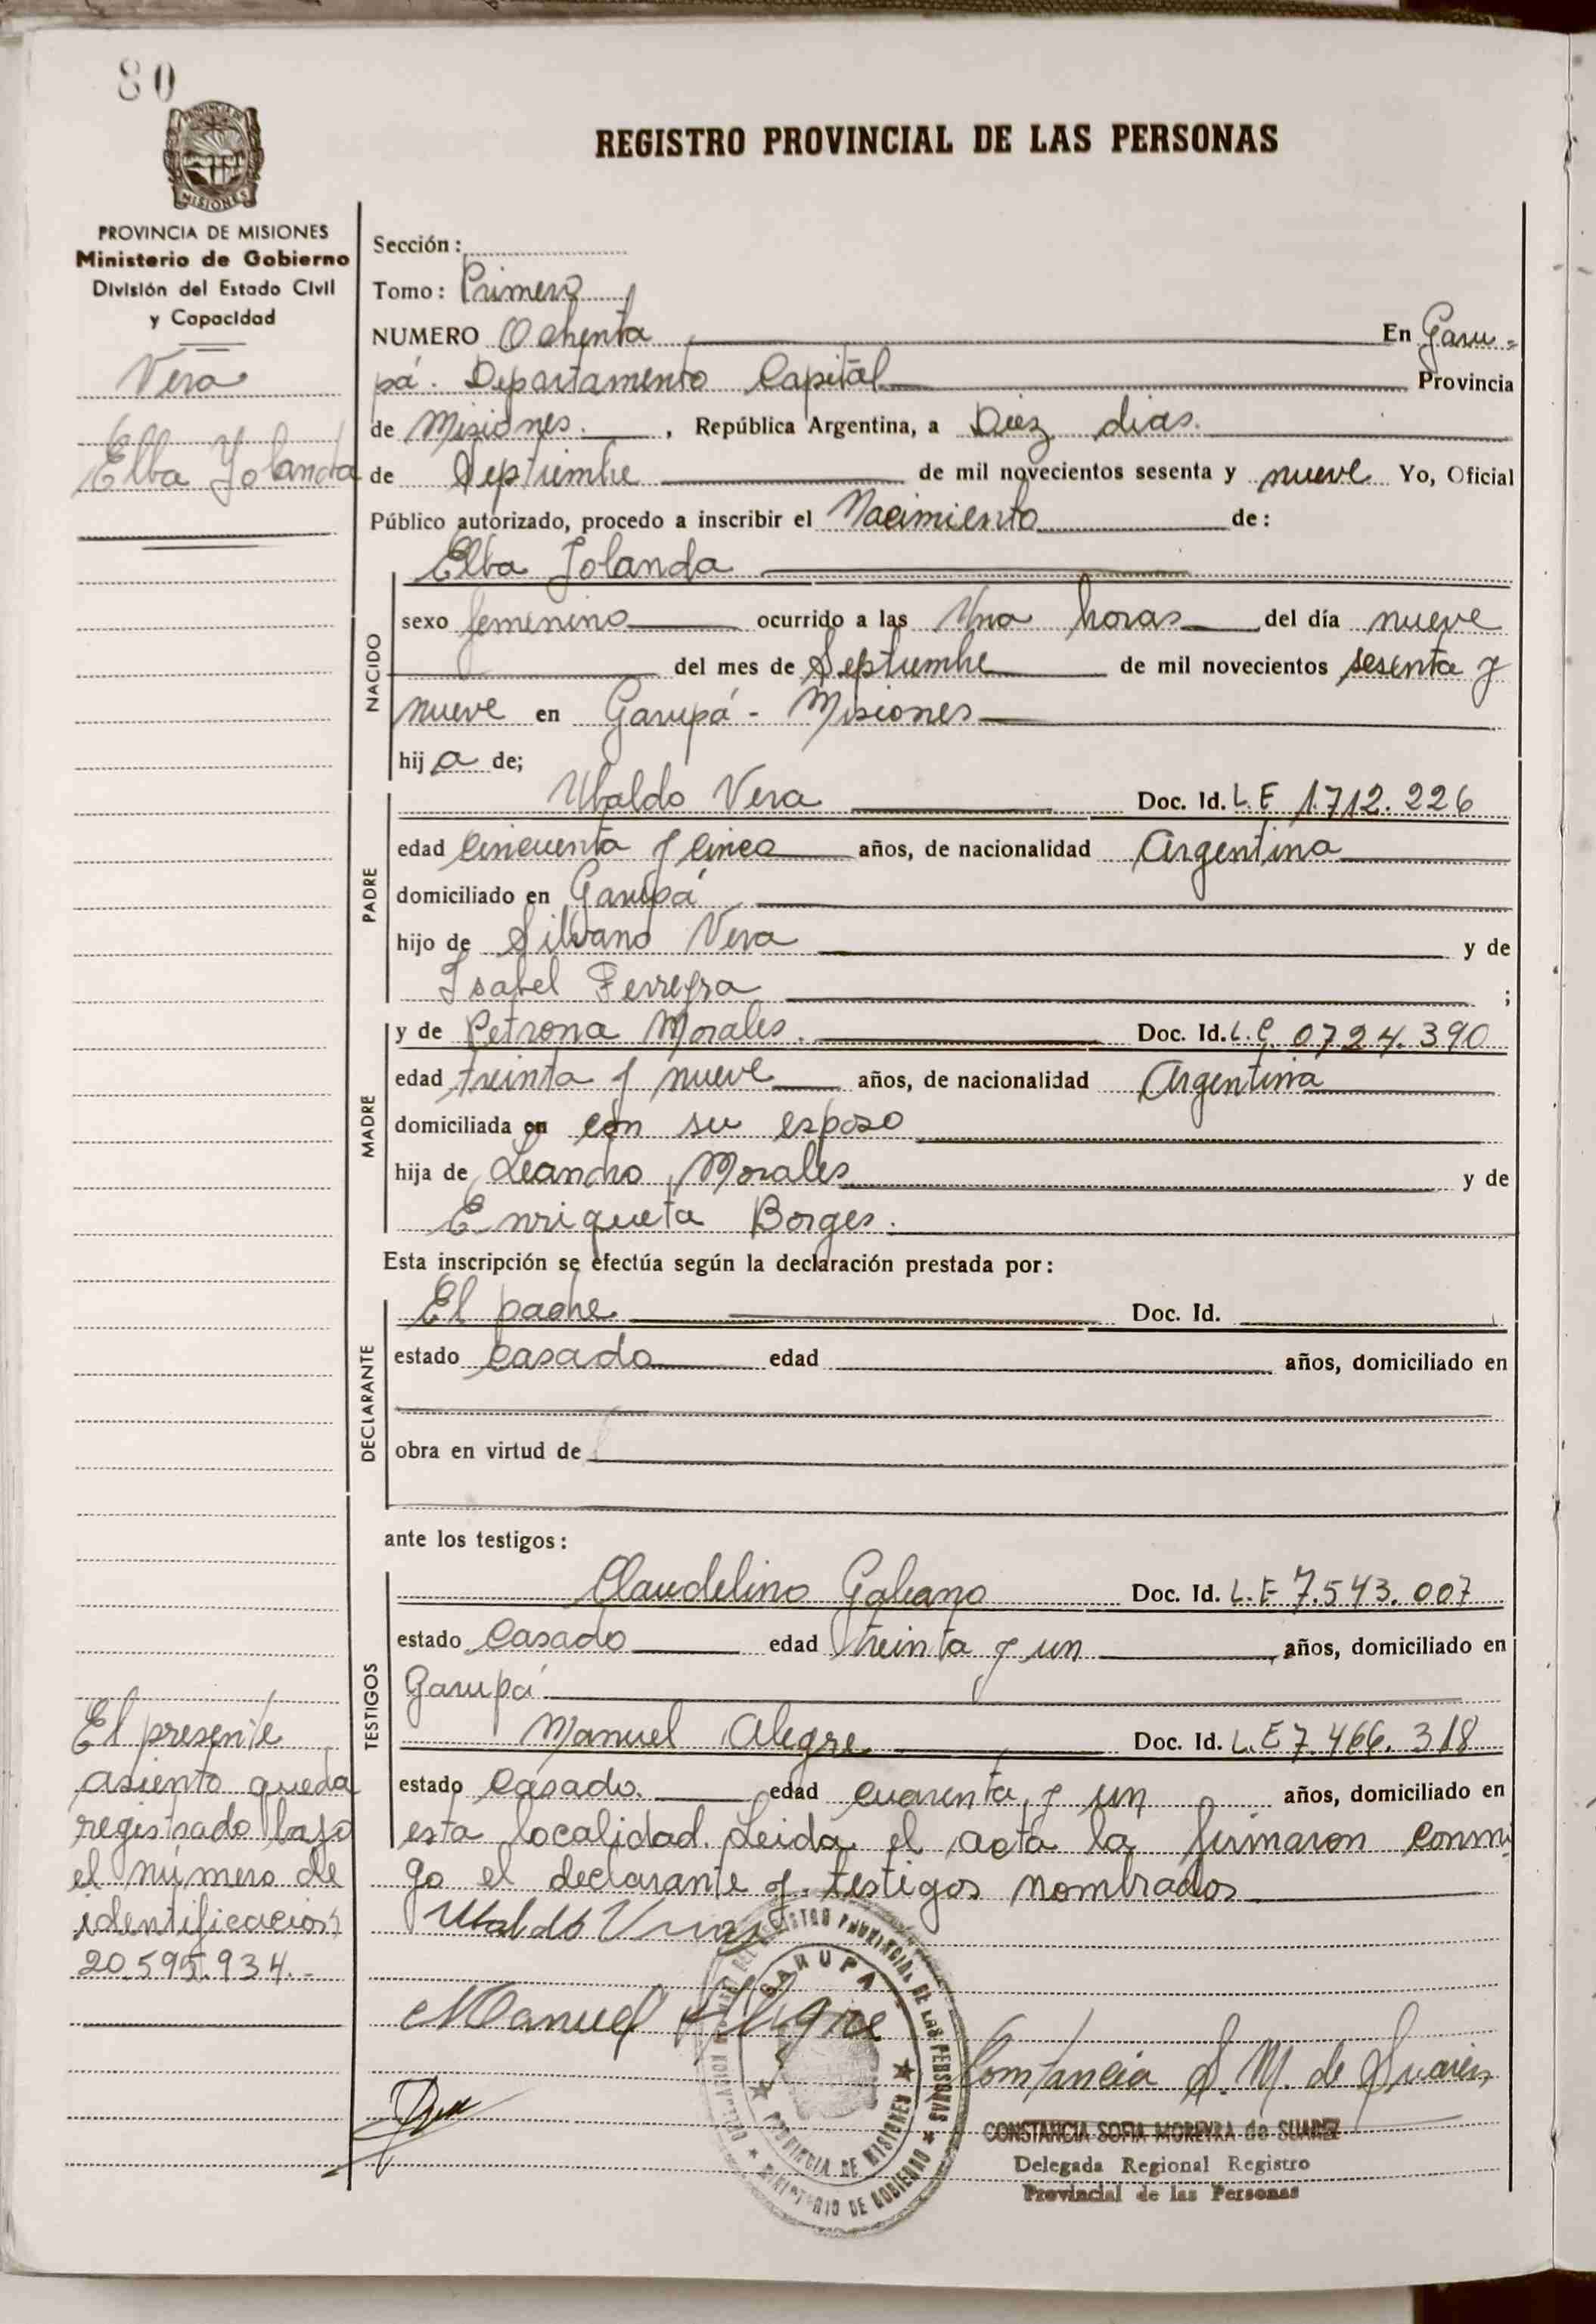 80
PROVINCIA DE
MISIONES
REGISTRO PROVINCIAL DE LAS PERSONAS
PROVINCIA DE MISIONES
Ministerio de Gobierno
División del Estado Civil
y Capacidad
Vera
Elba Yolanda
Sección:
Tomo: Primero
NUMERO Ochenta En Garu=
pá. Departamento Capital Provincia
de Misiones. , República Argentina, a Diez dias.
de Septiembre de mil novecientos sesenta y nueve Yo, Oficial
Público autorizado, procedo a inscribir el Nacimiento de:
Elba Yolanda
NACIDO
sexo femenino ocurrido a las Una horas del día nueve
del mes de Septiembre de mil novecientos sesenta y
nueve en Garupá - Misiones
hija de;
PADRE
Ubaldo Vera Doc. Id. L.E 1.712.226
edad cincuenta y cinco años, de nacionalidad Argentina
domiciliado en Garupá
hijo de Silvano Vera y de
Isabel Ferreyra ;
MADRE
y de Petrona Morales. Doc. Id. L.C. 0724.390
edad treinta y nueve años, de nacionalidad Argentina
domiciliada en con su esposo
hija de Leandro Morales y de
Enriqueta Borges.
Esta inscripción se efectúa según la declaración prestada por:
DECLARANTE
El padre Doc. Id.
estado casado edad años, domiciliado en
obra en virtud de
ante los testigos:
TESTIGOS
Claudelino Galeano Doc. Id. L.E 7.543.007
estado Casado edad treinta y un años, domiciliado en
Garupá
Manuel Alegre Doc. Id. L.E 7.466.318
estado Casado. edad cuarenta y un años, domiciliado en
esta localidad. Leida el acta la firmaron conmi
go el declarante y testigos nombrados
El presente
asiento queda
registrado bajo
el número de
identificación
20.595.934.-
Ubaldo Vera
Manuel Alegre
REGISTRO PROVINCIAL DE LAS PERSONAS
GARUPA
PROVINCIA DE MISIONES
MINISTERIO DE GOBIERNO
Constancia S. M. de Suarez
CONSTANCIA SOFIA MOREYRA de SUAREZ
Delegada Regional Registro
Provincial de las Personas